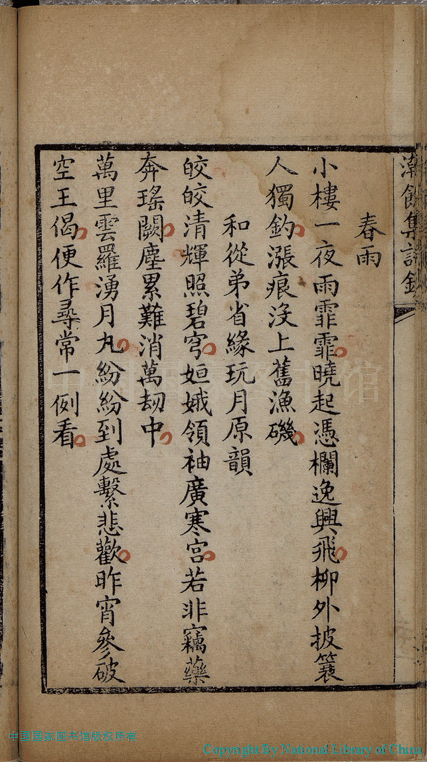 潮餘集詩鈔
春雨
小樓一夜雨霏霏曉起憑欄逸興飛柳外披簑
人獨釣漲痕没上舊漁磯
和從弟省緣玩月原韻
皎皎清輝照碧穹姮娥領袖廣寒宮若非竊藥
奔瑤闕塵累難消萬刼中
萬里雲羅湧月丸紛紛到處繫悲歡昨宵參破
空王偈便作尋常一例看
Copyright By National Library of China